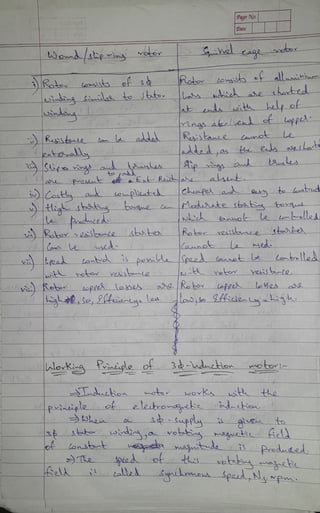 Page No:
Date:
Wound/slip ring rotor Squirrel cage rotor
i) Rotor consists of 3ϕ Rotor consists of alluminium
winding similar to stator bars which are shorted
winding at ends with help of
rings at end of copper.
ii) Resistance can be added Resistance cannot be
externally added, as the ends are shorted
iii) Slip rings and brushes Slip rings and brushes
are present to add Ext. Resist are absent.
iv) Costly and complicated Cheaper and easy to construct
v) High starting torque can Moderate starting torque
be produced which cannot be controlled
vi) Rotor resistance starter Rotor resistance starter
can be used. cannot be used.
vii) Speed control is possible Speed cannot be controlled
with rotor resistance with rotor resistance.
viii) Rotor copper losses are Rotor copper losses are
high, so, Efficiency = less low, so Efficiency = high.
Working Principle of 3ϕ-induction motor:-
⇒ Induction motor works with the
principle of electromagnetic induction
⇒ When a 3ϕ-supply is given to
3ϕ stator winding, a rotating magnetic field
of constant magnitude is produced.
⇒ The speed of this rotating magnetic
field is called synchronous speed, Ns rpm.